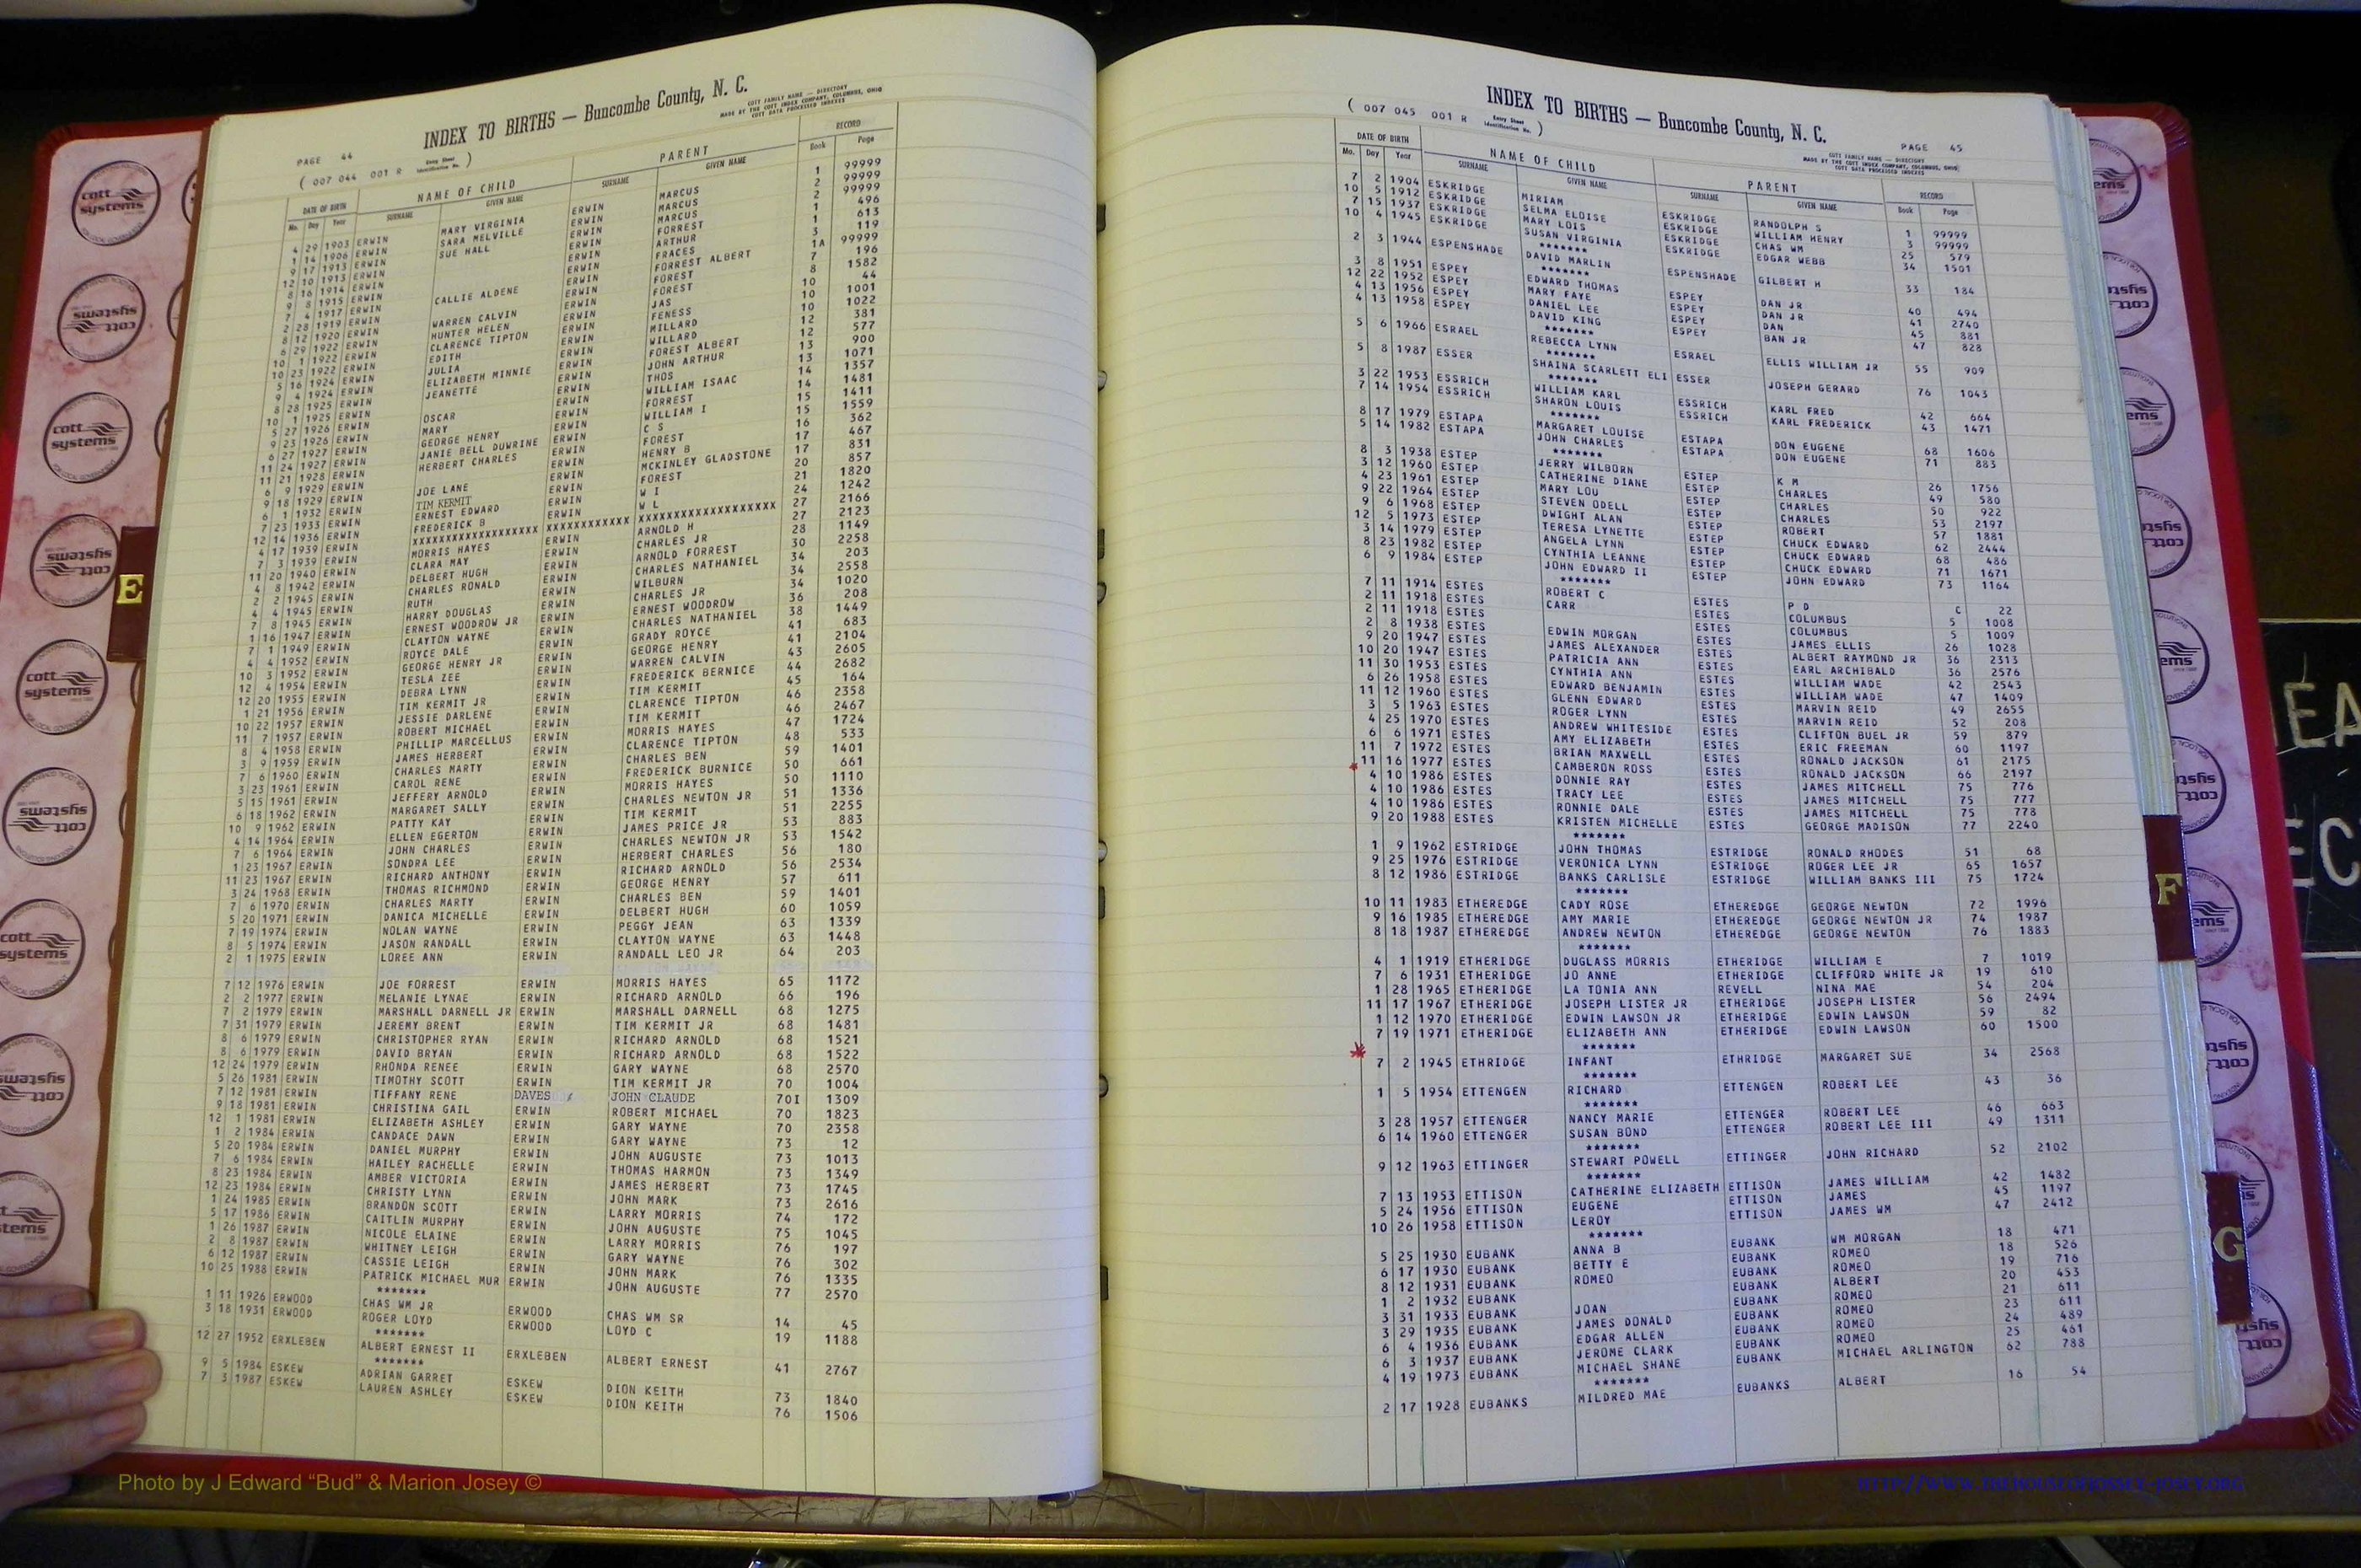 INDEX TO BIRTHS — Buncombe County, N. C.
COTT FAMILY NAME — DIRECTORY
MADE BY THE COTT INDEX COMPANY, COLUMBUS, OHIO
COTT DATA PROCESSED INDEXES
PAGE 44
( 007 044 001 R Entry Sheet Identification No. )
DATE OF BIRTH NAME OF CHILD PARENT RECORD
Mo. Day Year SURNAME GIVEN NAME SURNAME GIVEN NAME Book Page
4 29 1903 ERWIN MARY VIRGINIA ERWIN MARCUS 1 99999
1 14 1906 ERWIN SARA MELVILLE ERWIN MARCUS 2 99999
9 17 1913 ERWIN SUE HALL ERWIN MARCUS 2 99999
12 10 1913 ERWIN ERWIN FORREST 1 496
8 16 1914 ERWIN ERWIN ARTHUR 1 613
9 8 1915 ERWIN ERWIN FRACES 3 119
7 4 1917 ERWIN CALLIE ALDENE ERWIN FORREST ALBERT 1A 99999
2 28 1919 ERWIN ERWIN FOREST 7 196
8 12 1920 ERWIN WARREN CALVIN ERWIN FOREST 8 1582
6 29 1922 ERWIN HUNTER HELEN ERWIN JAS 10 44
10 1 1922 ERWIN CLARENCE TIPTON ERWIN FENESS 10 1001
10 23 1922 ERWIN EDITH ERWIN MILLARD 10 1022
5 16 1924 ERWIN JULIA ERWIN WILLARD 12 381
9 4 1924 ERWIN ELIZABETH MINNIE ERWIN FOREST ALBERT 12 577
8 28 1925 ERWIN JEANETTE ERWIN JOHN ARTHUR 13 900
10 1 1925 ERWIN ERWIN THOS 13 1071
5 27 1926 ERWIN OSCAR ERWIN WILLIAM ISAAC 14 1357
9 23 1926 ERWIN MARY ERWIN FORREST 14 1481
6 27 1927 ERWIN GEORGE HENRY ERWIN WILLIAM I 15 1411
11 24 1927 ERWIN JANIE BELL DUWRINE ERWIN C S 15 1559
11 21 1928 ERWIN HERBERT CHARLES ERWIN FOREST 16 362
6 9 1929 ERWIN ERWIN HENRY B 17 467
9 18 1929 ERWIN JOE LANE ERWIN MCKINLEY GLADSTONE 17 831
6 1 1932 ERWIN TIM KERMIT ERWIN FOREST 20 857
7 23 1933 ERWIN ERNEST EDWARD ERWIN W I 21 1820
12 14 1936 ERWIN FREDERICK B ERWIN W L 24 1242
4 17 1939 ERWIN XXXXXXXXXXXXXXXXXX XXXXXXXXXXXX XXXXXXXXXXXXXXXXXXXX 27 2166
7 3 1939 ERWIN MORRIS HAYES ERWIN ARNOLD H 27 2123
11 20 1940 ERWIN CLARA MAY ERWIN CHARLES JR 28 1149
4 8 1942 ERWIN DELBERT HUGH ERWIN ARNOLD FORREST 30 2258
2 2 1945 ERWIN CHARLES RONALD ERWIN CHARLES NATHANIEL 34 203
4 4 1945 ERWIN RUTH ERWIN WILBURN 34 2558
7 8 1945 ERWIN HARRY DOUGLAS ERWIN CHARLES JR 34 1020
1 16 1947 ERWIN ERNEST WOODROW JR ERWIN ERNEST WOODROW 36 208
7 1 1949 ERWIN CLAYTON WAYNE ERWIN CHARLES NATHANIEL 38 1449
4 4 1952 ERWIN ROYCE DALE ERWIN GRADY ROYCE 41 683
10 3 1952 ERWIN GEORGE HENRY JR ERWIN GEORGE HENRY 41 2104
12 4 1954 ERWIN TESLA ZEE ERWIN WARREN CALVIN 43 2605
12 20 1955 ERWIN DEBRA LYNN ERWIN FREDERICK BERNICE 44 2682
1 21 1956 ERWIN TIM KERMIT JR ERWIN TIM KERMIT 45 164
10 22 1957 ERWIN JESSIE DARLENE ERWIN CLARENCE TIPTON 46 2358
11 7 1957 ERWIN ROBERT MICHAEL ERWIN TIM KERMIT 46 2467
8 4 1958 ERWIN PHILLIP MARCELLUS ERWIN MORRIS HAYES 47 1724
3 9 1959 ERWIN JAMES HERBERT ERWIN CLARENCE TIPTON 48 533
7 6 1960 ERWIN CHARLES MARTY ERWIN CHARLES BEN 59 1401
3 23 1961 ERWIN CAROL RENE ERWIN FREDERICK BURNICE 50 661
5 15 1961 ERWIN JEFFERY ARNOLD ERWIN MORRIS HAYES 50 1110
6 18 1962 ERWIN MARGARET SALLY ERWIN CHARLES NEWTON JR 51 1336
10 9 1962 ERWIN PATTY KAY ERWIN TIM KERMIT 51 2255
4 14 1964 ERWIN ELLEN EGERTON ERWIN JAMES PRICE JR 53 883
7 6 1964 ERWIN JOHN CHARLES ERWIN CHARLES NEWTON JR 53 1542
1 23 1967 ERWIN SONDRA LEE ERWIN HERBERT CHARLES 56 180
11 23 1967 ERWIN RICHARD ANTHONY ERWIN RICHARD ARNOLD 56 2534
3 24 1968 ERWIN THOMAS RICHMOND ERWIN GEORGE HENRY 57 611
7 6 1970 ERWIN CHARLES MARTY ERWIN CHARLES BEN 59 1401
5 20 1971 ERWIN DANICA MICHELLE ERWIN DELBERT HUGH 60 1059
7 19 1974 ERWIN NOLAN WAYNE ERWIN PEGGY JEAN 63 1339
8 5 1974 ERWIN JASON RANDALL ERWIN CLAYTON WAYNE 63 1448
2 1 1975 ERWIN LOREE ANN ERWIN RANDALL LEO JR 64 203
7 12 1976 ERWIN JOE FORREST ERWIN MORRIS HAYES 65 1172
2 2 1977 ERWIN MELANIE LYNAE ERWIN RICHARD ARNOLD 66 196
7 2 1979 ERWIN MARSHALL DARNELL JR ERWIN MARSHALL DARNELL 68 1275
7 31 1979 ERWIN JEREMY BRENT ERWIN TIM KERMIT JR 68 1481
8 6 1979 ERWIN CHRISTOPHER RYAN ERWIN RICHARD ARNOLD 68 1521
8 6 1979 ERWIN DAVID BRYAN ERWIN RICHARD ARNOLD 68 1522
12 24 1979 ERWIN RHONDA RENEE ERWIN GARY WAYNE 68 2570
5 26 1981 ERWIN TIMOTHY SCOTT ERWIN TIM KERMIT JR 70 1004
7 12 1981 ERWIN TIFFANY RENE DAVES JOHN CLAUDE 70I 1309
9 18 1981 ERWIN CHRISTINA GAIL ERWIN ROBERT MICHAEL 70 1823
12 1 1981 ERWIN ELIZABETH ASHLEY ERWIN GARY WAYNE 70 2358
1 2 1984 ERWIN CANDACE DAWN ERWIN GARY WAYNE 73 12
5 20 1984 ERWIN DANIEL MURPHY ERWIN JOHN AUGUSTE 73 1013
7 6 1984 ERWIN HAILEY RACHELLE ERWIN THOMAS HARMON 73 1349
8 23 1984 ERWIN AMBER VICTORIA ERWIN JAMES HERBERT 73 1745
12 23 1984 ERWIN CHRISTY LYNN ERWIN JOHN MARK 73 2616
1 24 1985 ERWIN BRANDON SCOTT ERWIN LARRY MORRIS 74 172
5 17 1986 ERWIN CAITLIN MURPHY ERWIN JOHN AUGUSTE 75 1045
1 26 1987 ERWIN NICOLE ELAINE ERWIN LARRY MORRIS 76 197
2 8 1987 ERWIN WHITNEY LEIGH ERWIN GARY WAYNE 76 302
6 12 1987 ERWIN CASSIE LEIGH ERWIN JOHN MARK 76 1335
10 25 1988 ERWIN PATRICK MICHAEL MUR ERWIN JOHN AUGUSTE 77 2570
*******
1 11 1926 ERWOOD CHAS WM JR ERWOOD CHAS WM SR 14 45
3 18 1931 ERWOOD ROGER LOYD ERWOOD LOYD C 19 1188
*******
12 27 1952 ERXLEBEN ALBERT ERNEST II ERXLEBEN ALBERT ERNEST 41 2767
*******
9 5 1984 ESKEW ADRIAN GARRET ESKEW DION KEITH 73 1840
7 3 1987 ESKEW LAUREN ASHLEY ESKEW DION KEITH 76 1506
INDEX TO BIRTHS — Buncombe County, N. C.
( 007 045 001 R Entry Sheet Identification No. )
PAGE 45
COTT FAMILY NAME — DIRECTORY
MADE BY THE COTT INDEX COMPANY, COLUMBUS, OHIO
COTT DATA PROCESSED INDEXES
DATE OF BIRTH NAME OF CHILD PARENT RECORD
Mo. Day Year SURNAME GIVEN NAME SURNAME GIVEN NAME Book Page
7 2 1904 ESKRIDGE MIRIAM ESKRIDGE RANDOLPH S 1 99999
10 5 1912 ESKRIDGE SELMA ELOISE ESKRIDGE WILLIAM HENRY 3 99999
7 15 1937 ESKRIDGE MARY LOIS ESKRIDGE CHAS WM 25 579
10 4 1945 ESKRIDGE SUSAN VIRGINIA ESKRIDGE EDGAR WEBB 34 1501
*******
2 3 1944 ESPENSHADE DAVID MARLIN ESPENSHADE GILBERT H 33 184
*******
3 8 1951 ESPEY EDWARD THOMAS ESPEY DAN JR 40 494
12 22 1952 ESPEY MARY FAYE ESPEY DAN JR 41 2740
4 13 1956 ESPEY DANIEL LEE ESPEY DAN 45 881
4 13 1958 ESPEY DAVID KING ESPEY BAN JR 47 828
*******
5 6 1966 ESRAEL REBECCA LYNN ESRAEL ELLIS WILLIAM JR 55 909
*******
5 8 1987 ESSER SHAINA SCARLETT ELI ESSER JOSEPH GERARD 76 1043
*******
3 22 1953 ESSRICH WILLIAM KARL ESSRICH KARL FRED 42 664
7 14 1954 ESSRICH SHARON LOUIS ESSRICH KARL FREDERICK 43 1471
*******
8 17 1979 ESTAPA MARGARET LOUISE ESTAPA DON EUGENE 68 1606
5 14 1982 ESTAPA JOHN CHARLES ESTAPA DON EUGENE 71 883
*******
8 3 1938 ESTEP JERRY WILBORN ESTEP K M 26 1756
3 12 1960 ESTEP CATHERINE DIANE ESTEP CHARLES 49 580
4 23 1961 ESTEP MARY LOU ESTEP CHARLES 50 922
9 22 1964 ESTEP STEVEN ODELL ESTEP CHARLES 53 2197
9 6 1968 ESTEP DWIGHT ALAN ESTEP ROBERT 57 1881
12 5 1973 ESTEP TERESA LYNETTE ESTEP CHUCK EDWARD 62 2444
3 14 1979 ESTEP ANGELA LYNN ESTEP CHUCK EDWARD 68 486
8 23 1982 ESTEP CYNTHIA LEANNE ESTEP CHUCK EDWARD 71 1671
6 9 1984 ESTEP JOHN EDWARD II ESTEP JOHN EDWARD 73 1164
*******
7 11 1914 ESTES ROBERT C ESTES P D C 22
2 11 1918 ESTES CARR ESTES COLUMBUS 5 1008
2 11 1918 ESTES ESTES COLUMBUS 5 1009
2 8 1938 ESTES EDWIN MORGAN ESTES JAMES ELLIS 26 1028
9 20 1947 ESTES JAMES ALEXANDER ESTES ALBERT RAYMOND JR 36 2313
10 20 1947 ESTES PATRICIA ANN ESTES EARL ARCHIBALD 36 2576
11 30 1953 ESTES CYNTHIA ANN ESTES WILLIAM WADE 42 2543
6 26 1958 ESTES EDWARD BENJAMIN ESTES WILLIAM WADE 47 1409
11 12 1960 ESTES GLENN EDWARD ESTES MARVIN REID 49 2655
3 5 1963 ESTES ROGER LYNN ESTES MARVIN REID 52 208
4 25 1970 ESTES ANDREW WHITESIDE ESTES CLIFTON BUEL JR 59 879
6 6 1971 ESTES AMY ELIZABETH ESTES ERIC FREEMAN 60 1197
11 7 1972 ESTES BRIAN MAXWELL ESTES RONALD JACKSON 61 2175
* 11 16 1977 ESTES CAMBERON ROSS ESTES RONALD JACKSON 66 2197
4 10 1986 ESTES DONNIE RAY ESTES JAMES MITCHELL 75 776
4 10 1986 ESTES TRACY LEE ESTES JAMES MITCHELL 75 777
4 10 1986 ESTES RONNIE DALE ESTES JAMES MITCHELL 75 778
9 20 1988 ESTES KRISTEN MICHELLE ESTES GEORGE MADISON 77 2240
*******
1 9 1962 ESTRIDGE JOHN THOMAS ESTRIDGE RONALD RHODES 51 68
9 25 1976 ESTRIDGE VERONICA LYNN ESTRIDGE ROGER LEE JR 65 1657
8 12 1986 ESTRIDGE BANKS CARLISLE ESTRIDGE WILLIAM BANKS III 75 1724
*******
10 11 1983 ETHEREDGE CADY ROSE ETHEREDGE GEORGE NEWTON 72 1996
9 16 1985 ETHEREDGE AMY MARIE ETHEREDGE GEORGE NEWTON JR 74 1987
8 18 1987 ETHEREDGE ANDREW NEWTON ETHEREDGE GEORGE NEWTON 76 1883
*******
4 1 1919 ETHERIDGE DUGLASS MORRIS ETHERIDGE WILLIAM E 7 1019
7 6 1931 ETHERIDGE JO ANNE ETHERIDGE CLIFFORD WHITE JR 19 610
1 28 1965 ETHERIDGE LA TONIA ANN REVELL NINA MAE 54 204
11 17 1967 ETHERIDGE JOSEPH LISTER JR ETHERIDGE JOSEPH LISTER 56 2494
1 12 1970 ETHERIDGE EDWIN LAWSON JR ETHERIDGE EDWIN LAWSON 59 82
7 19 1971 ETHERIDGE ELIZABETH ANN ETHERIDGE EDWIN LAWSON 60 1500
*******
* 7 2 1945 ETHRIDGE INFANT ETHRIDGE MARGARET SUE 34 2568
*******
1 5 1954 ETTENGEN RICHARD ETTENGEN ROBERT LEE 43 36
*******
3 28 1957 ETTENGER NANCY MARIE ETTENGER ROBERT LEE 46 663
6 14 1960 ETTENGER SUSAN BOND ETTENGER ROBERT LEE III 49 1311
*******
9 12 1963 ETTINGER STEWART POWELL ETTINGER JOHN RICHARD 52 2102
*******
7 13 1953 ETTISON CATHERINE ELIZABETH ETTISON JAMES WILLIAM 42 1482
5 24 1956 ETTISON EUGENE ETTISON JAMES 45 1197
10 26 1958 ETTISON LEROY ETTISON JAMES WM 47 2412
*******
5 25 1930 EUBANK ANNA B EUBANK WM MORGAN 18 471
6 17 1930 EUBANK BETTY E EUBANK ROMEO 18 526
8 12 1931 EUBANK ROMEO EUBANK ROMEO 19 716
1 2 1932 EUBANK EUBANK ALBERT 20 453
3 31 1933 EUBANK JOAN EUBANK ROMEO 21 611
3 29 1935 EUBANK JAMES DONALD EUBANK ROMEO 23 611
6 4 1936 EUBANK EDGAR ALLEN EUBANK ROMEO 24 489
6 3 1937 EUBANK JEROME CLARK EUBANK ROMEO 25 461
4 19 1973 EUBANK MICHAEL SHANE EUBANK MICHAEL ARLINGTON 62 788
*******
2 17 1928 EUBANKS MILDRED MAE EUBANKS ALBERT 16 54
E
F
G
cott systems
Photo by J Edward “Bud” & Marion Josey ©
HTTP://WWW.THEHOUSEOFJOSSEY-JOSEY.ORG